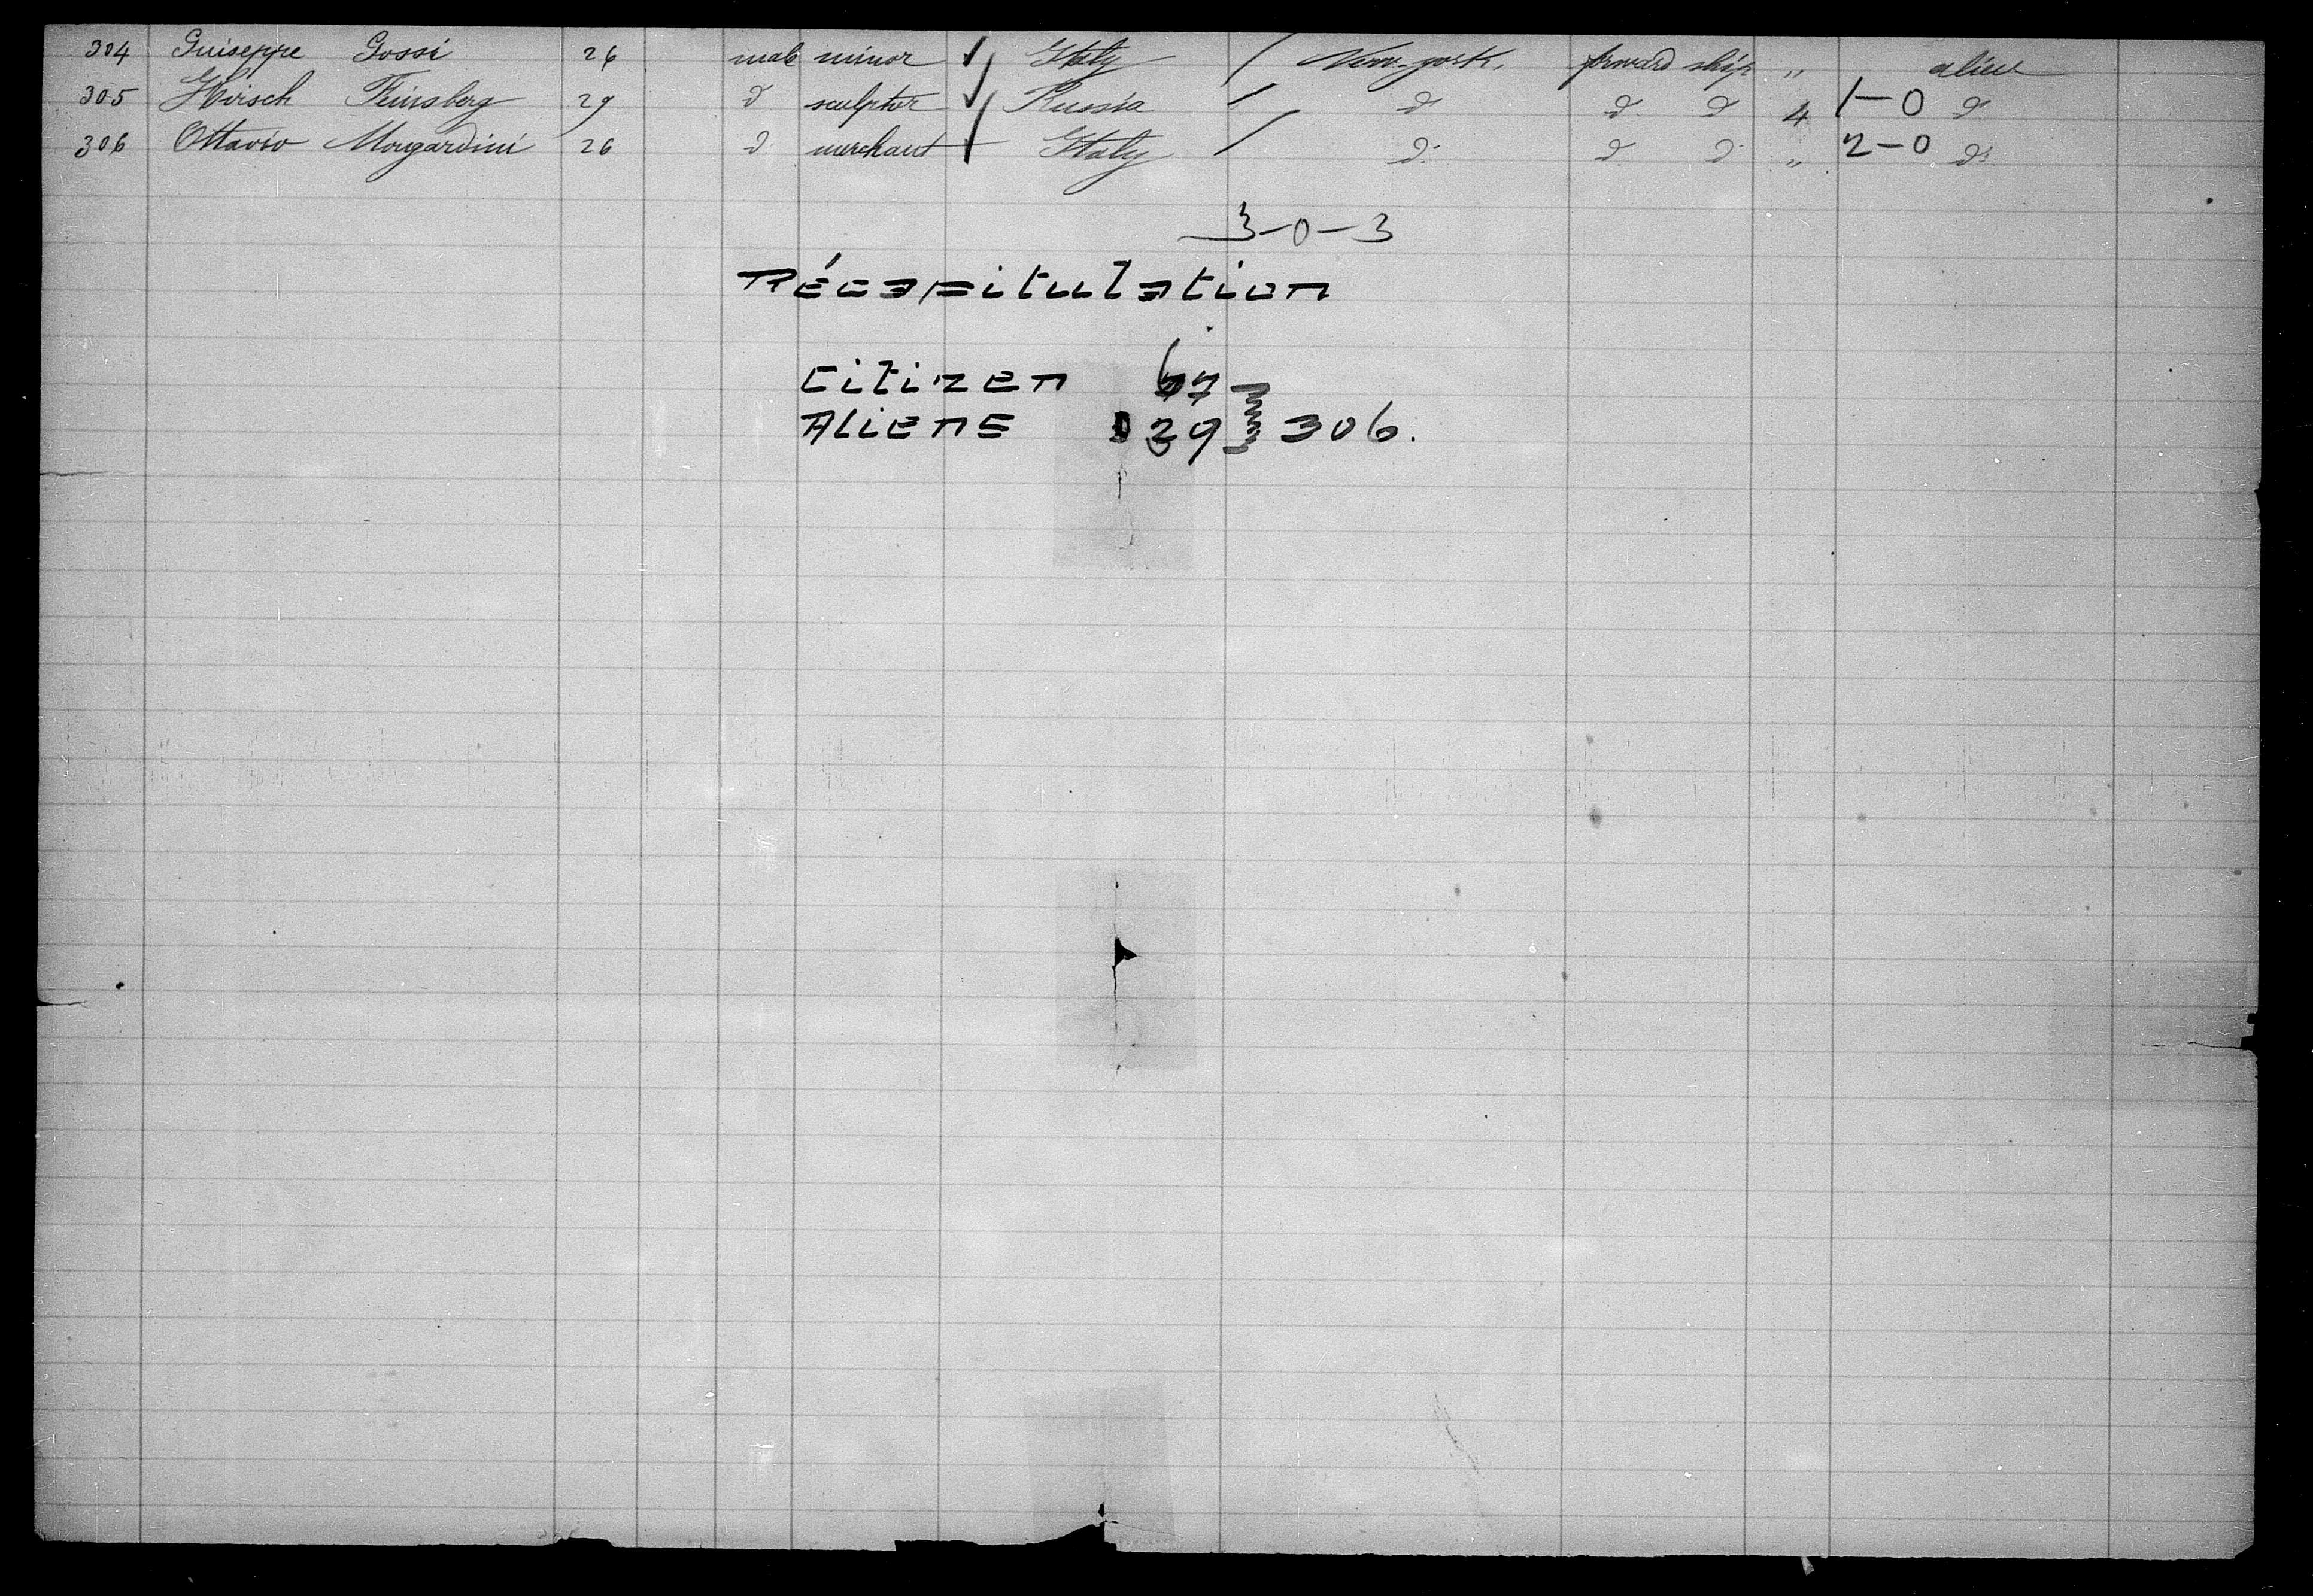 304 Guiseppe Gossi 26 male minor Italy / New-york. forward ship " alien
305 Hirsch Feinsberg 29 d° sculptor Russia / d° d° d° 4 1-0 d°
306 Ottavio Mongardini 26 d° merchant Italy / d° d° d° " 2-0 d°
3-0-3
Récapitulation
Citizen
Aliens 306.